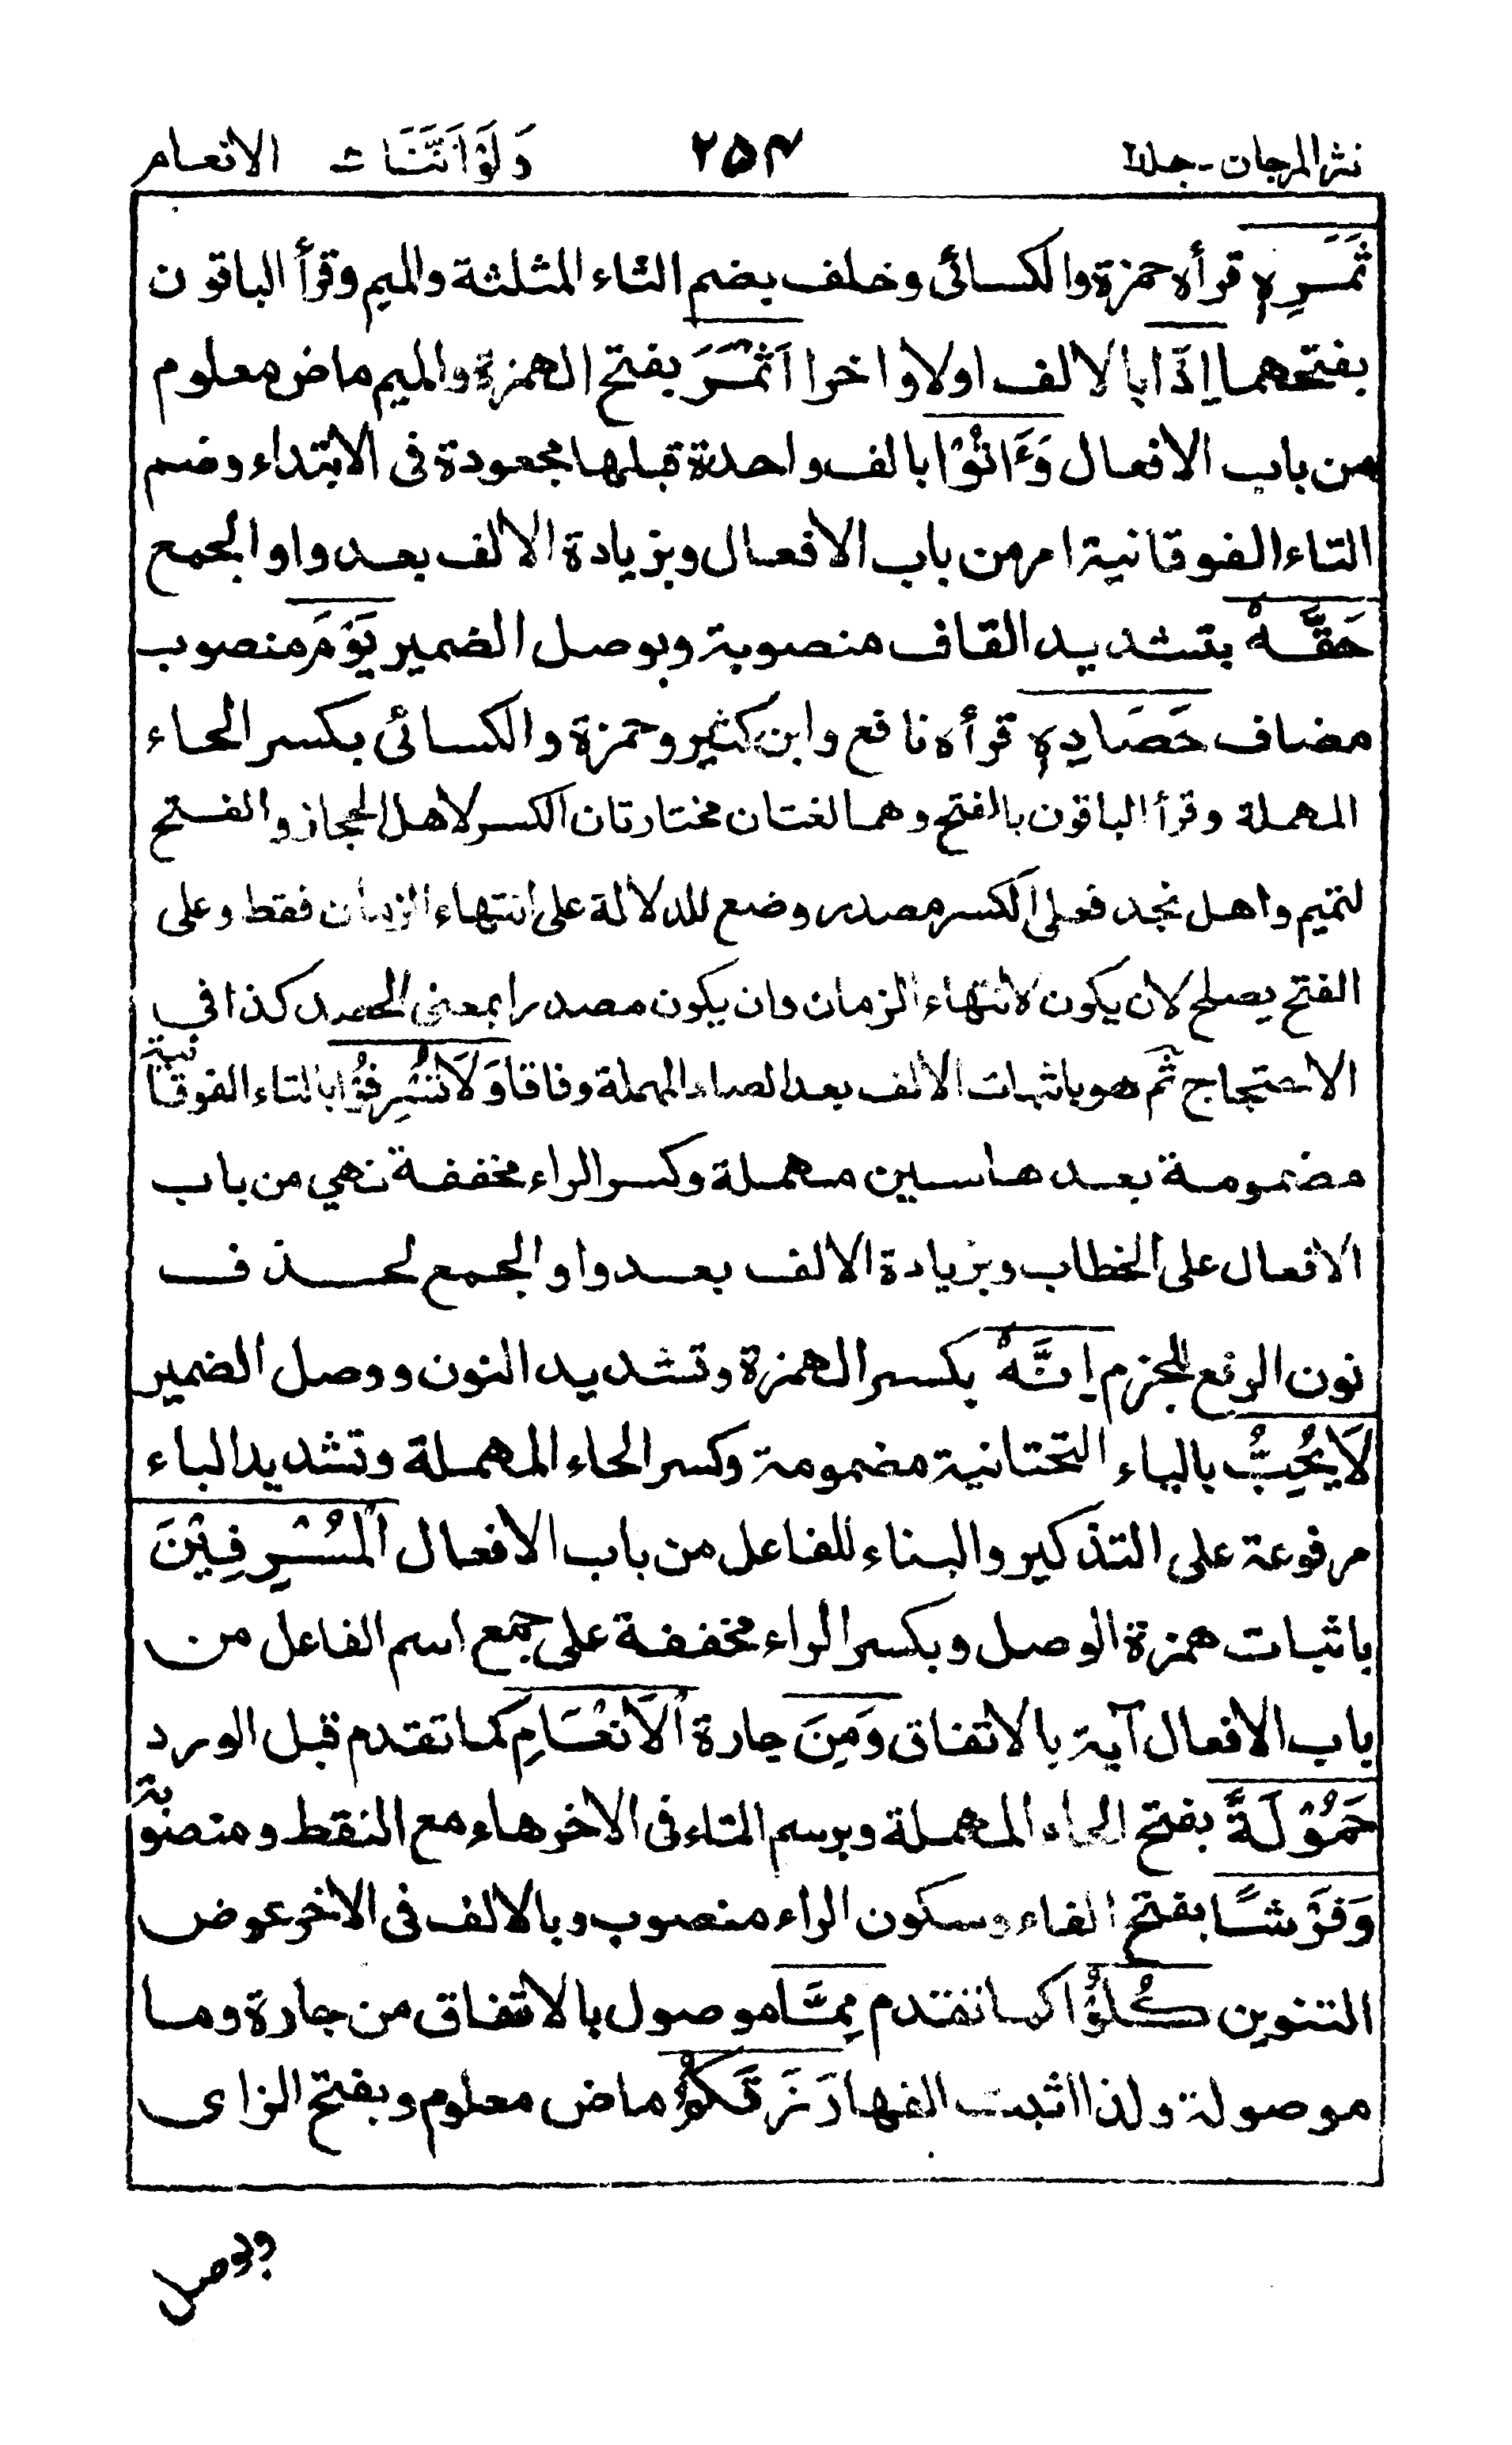 نثر المرجان - جلد ٢٥٤ ولو اننا ٨ الانعام
ثَمَرِهٖ قرأه حمزة والكسائى وخلف بضم الثاء المثلثة والميم وقرأ الباقون
بفتحهما اِذَا بالالف اولا واخرا اَثْمَرَ بفتح الهمزة والميم ماض معلوم
من باب الافعال وَءَاتُوْا بالف واحدة قبلها مجعودة فى الابتداء وضم
التاء الفوقانية امر من باب الافعال وبزيادة الالف بعد واو الجمع
حَقَّهٗ بتشديد القاف منصوبة وبوصل الضمير يَوْمَ منصوب
مضاف حَصَادِهٖ قرأه نافع وابن كثير وحمزة والكسائى بكسر الحاء
المهملة وقرأ الباقون بالفتح وهما لغتان مختارتان الكسر لاهل الحجاز والفتح
لتميم واهل نجد فعلى الكسر مصدر وضع للدلالة على انتهاء الزمان فقط وعلى
الفتح يصلح لان يكون لانتهاء الزمان وان يكون مصدرا بمعنى الحصد كذا في
الاحتجاج ثم هو باثبات الالف بعد الصاد المهملة وفاقا وَلَا تُسْرِفُوْا بالتاء الفوقانية
مضمومة بعدها سين مهملة وكسر الراء مخففة نهي من باب
الافعال على الخطاب وبزيادة الالف بعد واو الجمع لحذف
نون الرفع للجزم اِنَّهٗ بكسر الهمزة وتشديد النون ووصل الضمير
لَا يُحِبُّ بالياء التحتانية مضمومة وكسر الحاء المهملة وتشديد الباء
مرفوعة على التذكير والبناء للفاعل من باب الافعال الْمُسْرِفِيْنَ
باثبات همزة الوصل وبكسر الراء مخففة على جمع اسم الفاعل من
باب الافعال آية بالاتفاق وَمِنَ جارة الْاَنْعَامِ كما تقدم قبل الورد
حَمُوْلَةً بفتح الحاء المهملة وبرسم التاء فى الاخر هاء مع النقط ومنصوبة
وَفَرْشًا بفتح الفاء وسكون الراء منصوب وبالالف فى الاخر عوض
التنوين كُلُوْا كما تقدم مِمَّا موصول بالاتفاق من جارة وما
موصولة ولذا اثبت الفها رَزَقَكُمُ ماض معلوم وبفتح الزاى